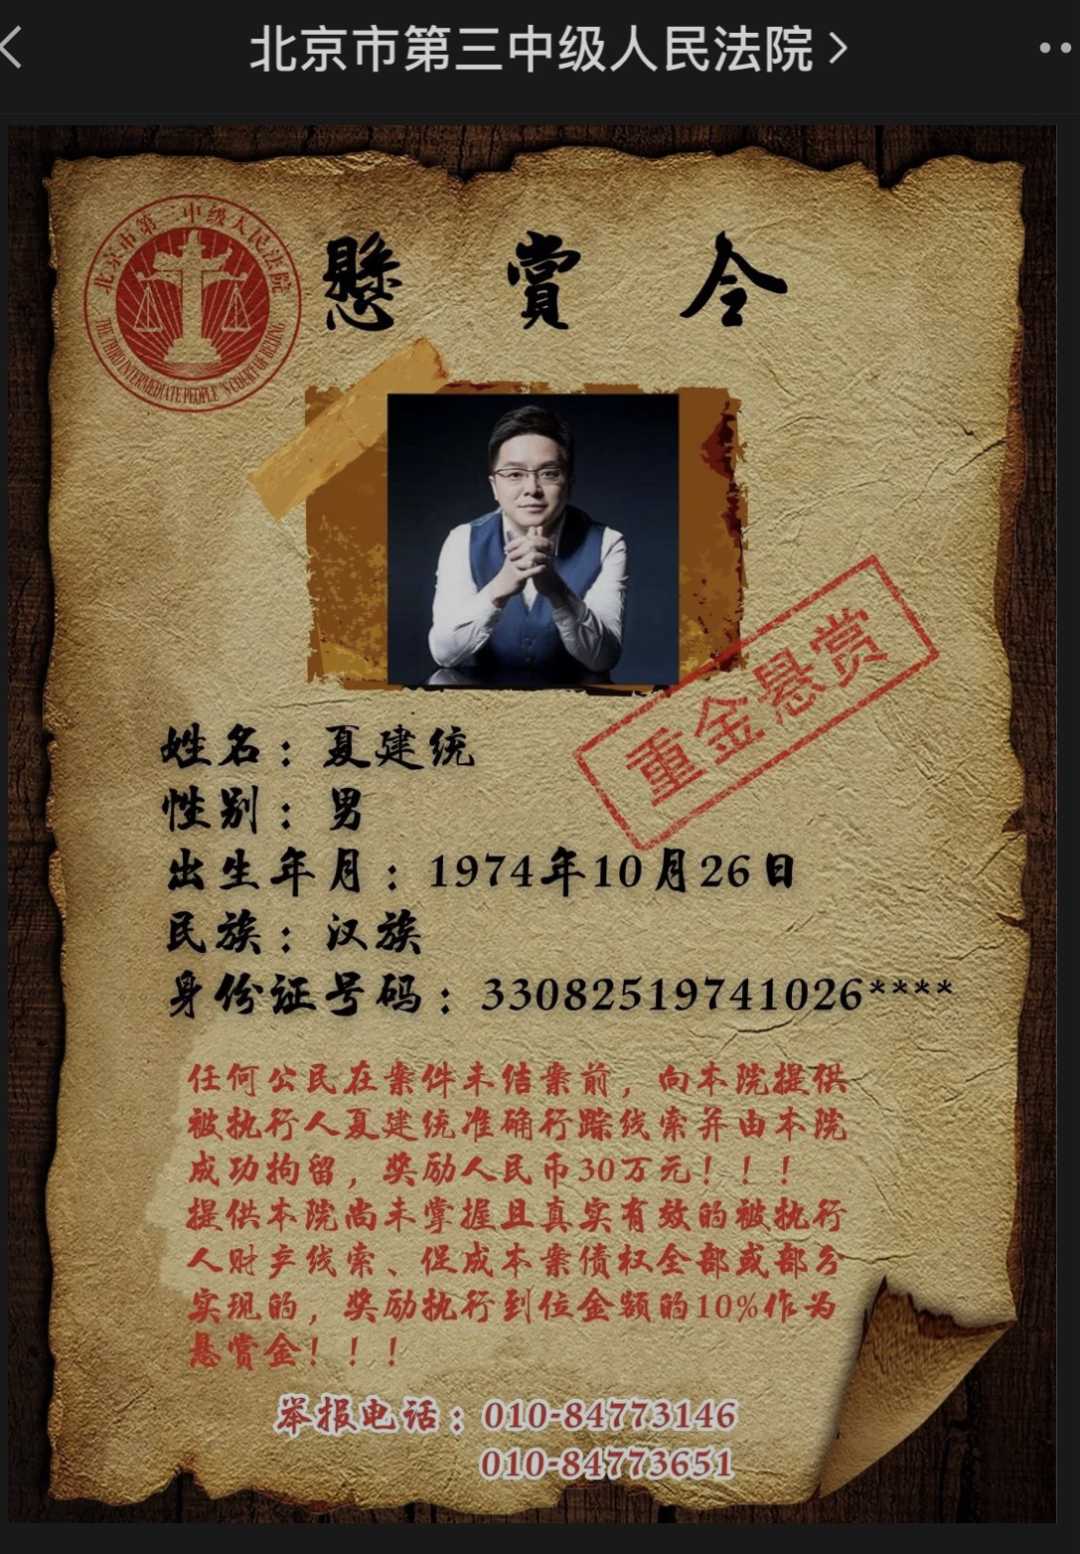 北京市第三中级人民法院
北京市第三中级人民法院
THE THIRD INTERMEDIATE PEOPLE'S COURT OF BEIJING
懸賞令
重金悬赏
姓名：夏建统
性别：男
出生年月：1974年10月26日
民族：汉族
身份证号码：33082519741026****
任何公民在案件未结案前，向本院提供
被执行人夏建统准确行踪线索并由本院
成功拘留，奖励人民币30万元！！！
提供本院尚未掌握且真实有效的被执行
人财产线索、促成本案债权全部或部分
实现的，奖励执行到位金额的10%作为
悬赏金！！！
举报电话：010-84773146
010-84773651